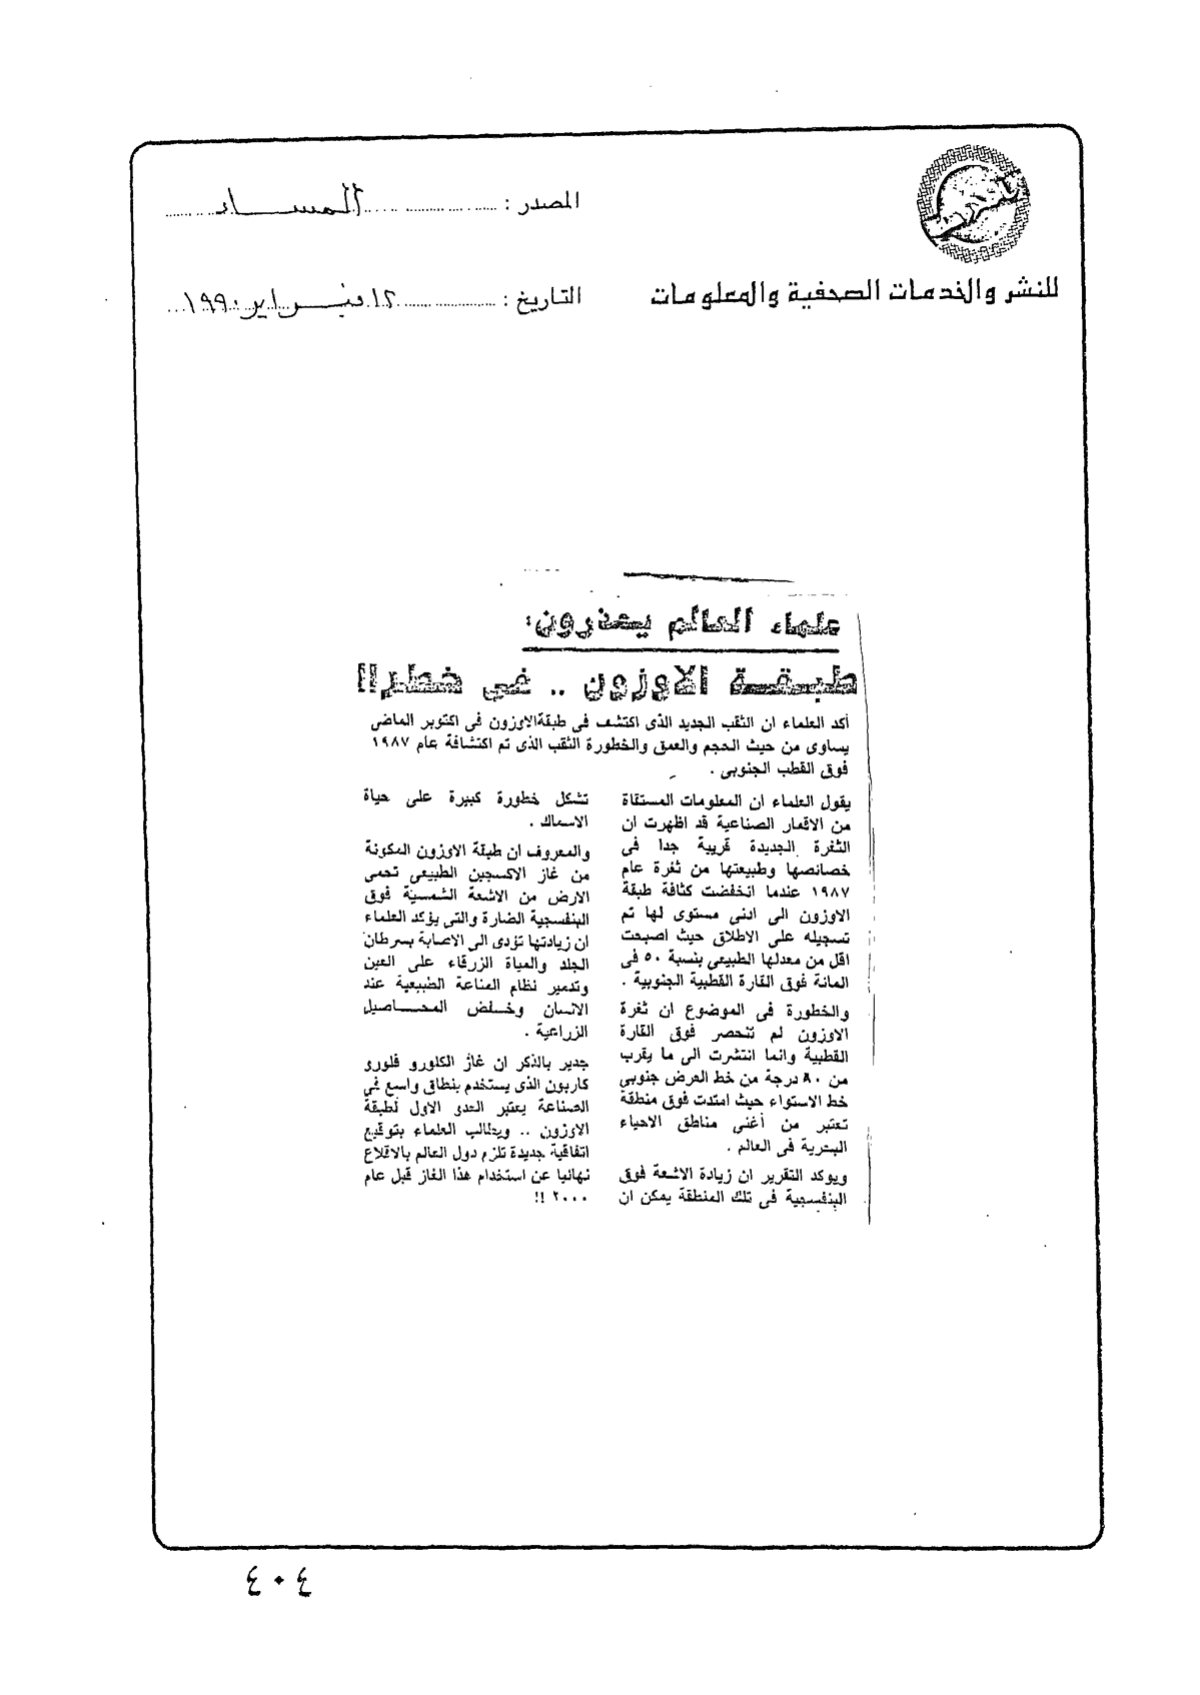 المصدر : المساء
للنشر والخدمات الصحفية والمعلومات
التاريخ : ١٢ فبراير ١٩٩٠
علماء العالم يحذرون:
طبقة الاوزون .. في خطر!!
أكد العلماء ان الثقب الجديد الذى اكتشف فى طبقة الاوزون فى اكتوبر الماضى
يساوى من حيث الحجم والعمق والخطورة الثقب الذى تم اكتشافة عام ١٩٨٧
فوق القطب الجنوبى .
يقول العلماء ان المعلومات المستقاة
من الاقمار الصناعية قد اظهرت ان
الثغرة الجديدة قريبة جدا فى
خصائصها وطبيعتها من ثغرة عام
١٩٨٧ عندما انخفضت كثافة طبقة
الاوزون الى ادنى مستوى لها تم
تسجيله على الاطلاق حيث اصبحت
اقل من معدلها الطبيعى بنسبة ٥٠ فى
المائة فوق القارة القطبية الجنوبية .
والخطورة فى الموضوع ان ثغرة
الاوزون لم تنحصر فوق القارة
القطبية وانما انتشرت الى ما يقرب
من ٨٠ درجة من خط العرض جنوبى
خط الاستواء حيث امتدت فوق منطقة
تعتبر من أغنى مناطق الاحياء
البحرية فى العالم .
ويوكد التقرير ان زيادة الاشعة فوق
البنفسجية فى تلك المنطقة يمكن ان
تشكل خطورة كبيرة على حياة
الاسماك .
والمعروف ان طبقة الاوزون المكونة
من غاز الاكسجين الطبيعى تحمى
الارض من الاشعة الشمسية فوق
البنفسجية الضارة والتى يؤكد العلماء
ان زيادتها تؤدى الى الاصابة بسرطان
الجلد والمياة الزرقاء على العين
وتدمير نظام المناعة الطبيعية عند
الانسان وخفض المحاصيل
الزراعية .
جدير بالذكر ان غاز الكلورو فلورو
كاربون الذى يستخدم بنطاق واسع في
الصناعة يعتبر العدو الاول لطبقة
الاوزون .. ويطالب العلماء بتوقيع
اتفاقية جديدة تلزم دول العالم بالاقلاع
نهائيا عن استخدام هذا الغاز قبل عام
٢٠٠٠ !!
٤٠٤